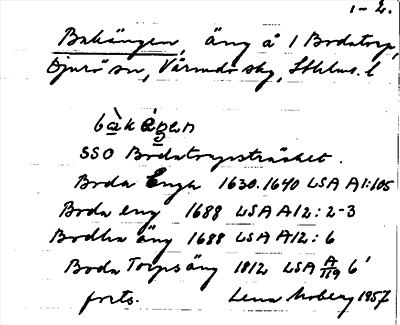 1-2.
Bakängen, äng å 1 Bodatorp,
Djurö sn, Värmdö skg, Sthlms. l
bàkǝ́gǝn
SSO Bodatorpsträsket.
Boda Enga 1630.1640 LSA A1:105
Boda eng 1688 LSA A12:2-3
Bodha äng 1688 LSA A12:6
Boda Torps äng 1812 LSA A/119 6'
forts. Lena Moberg 1957